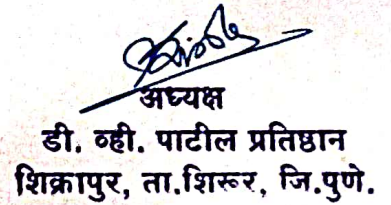 अध्यक्ष
डी. व्ही. पाटील प्रतिष्ठान
शिक्रापुर, ता.शिरूर, जि.पुणे.